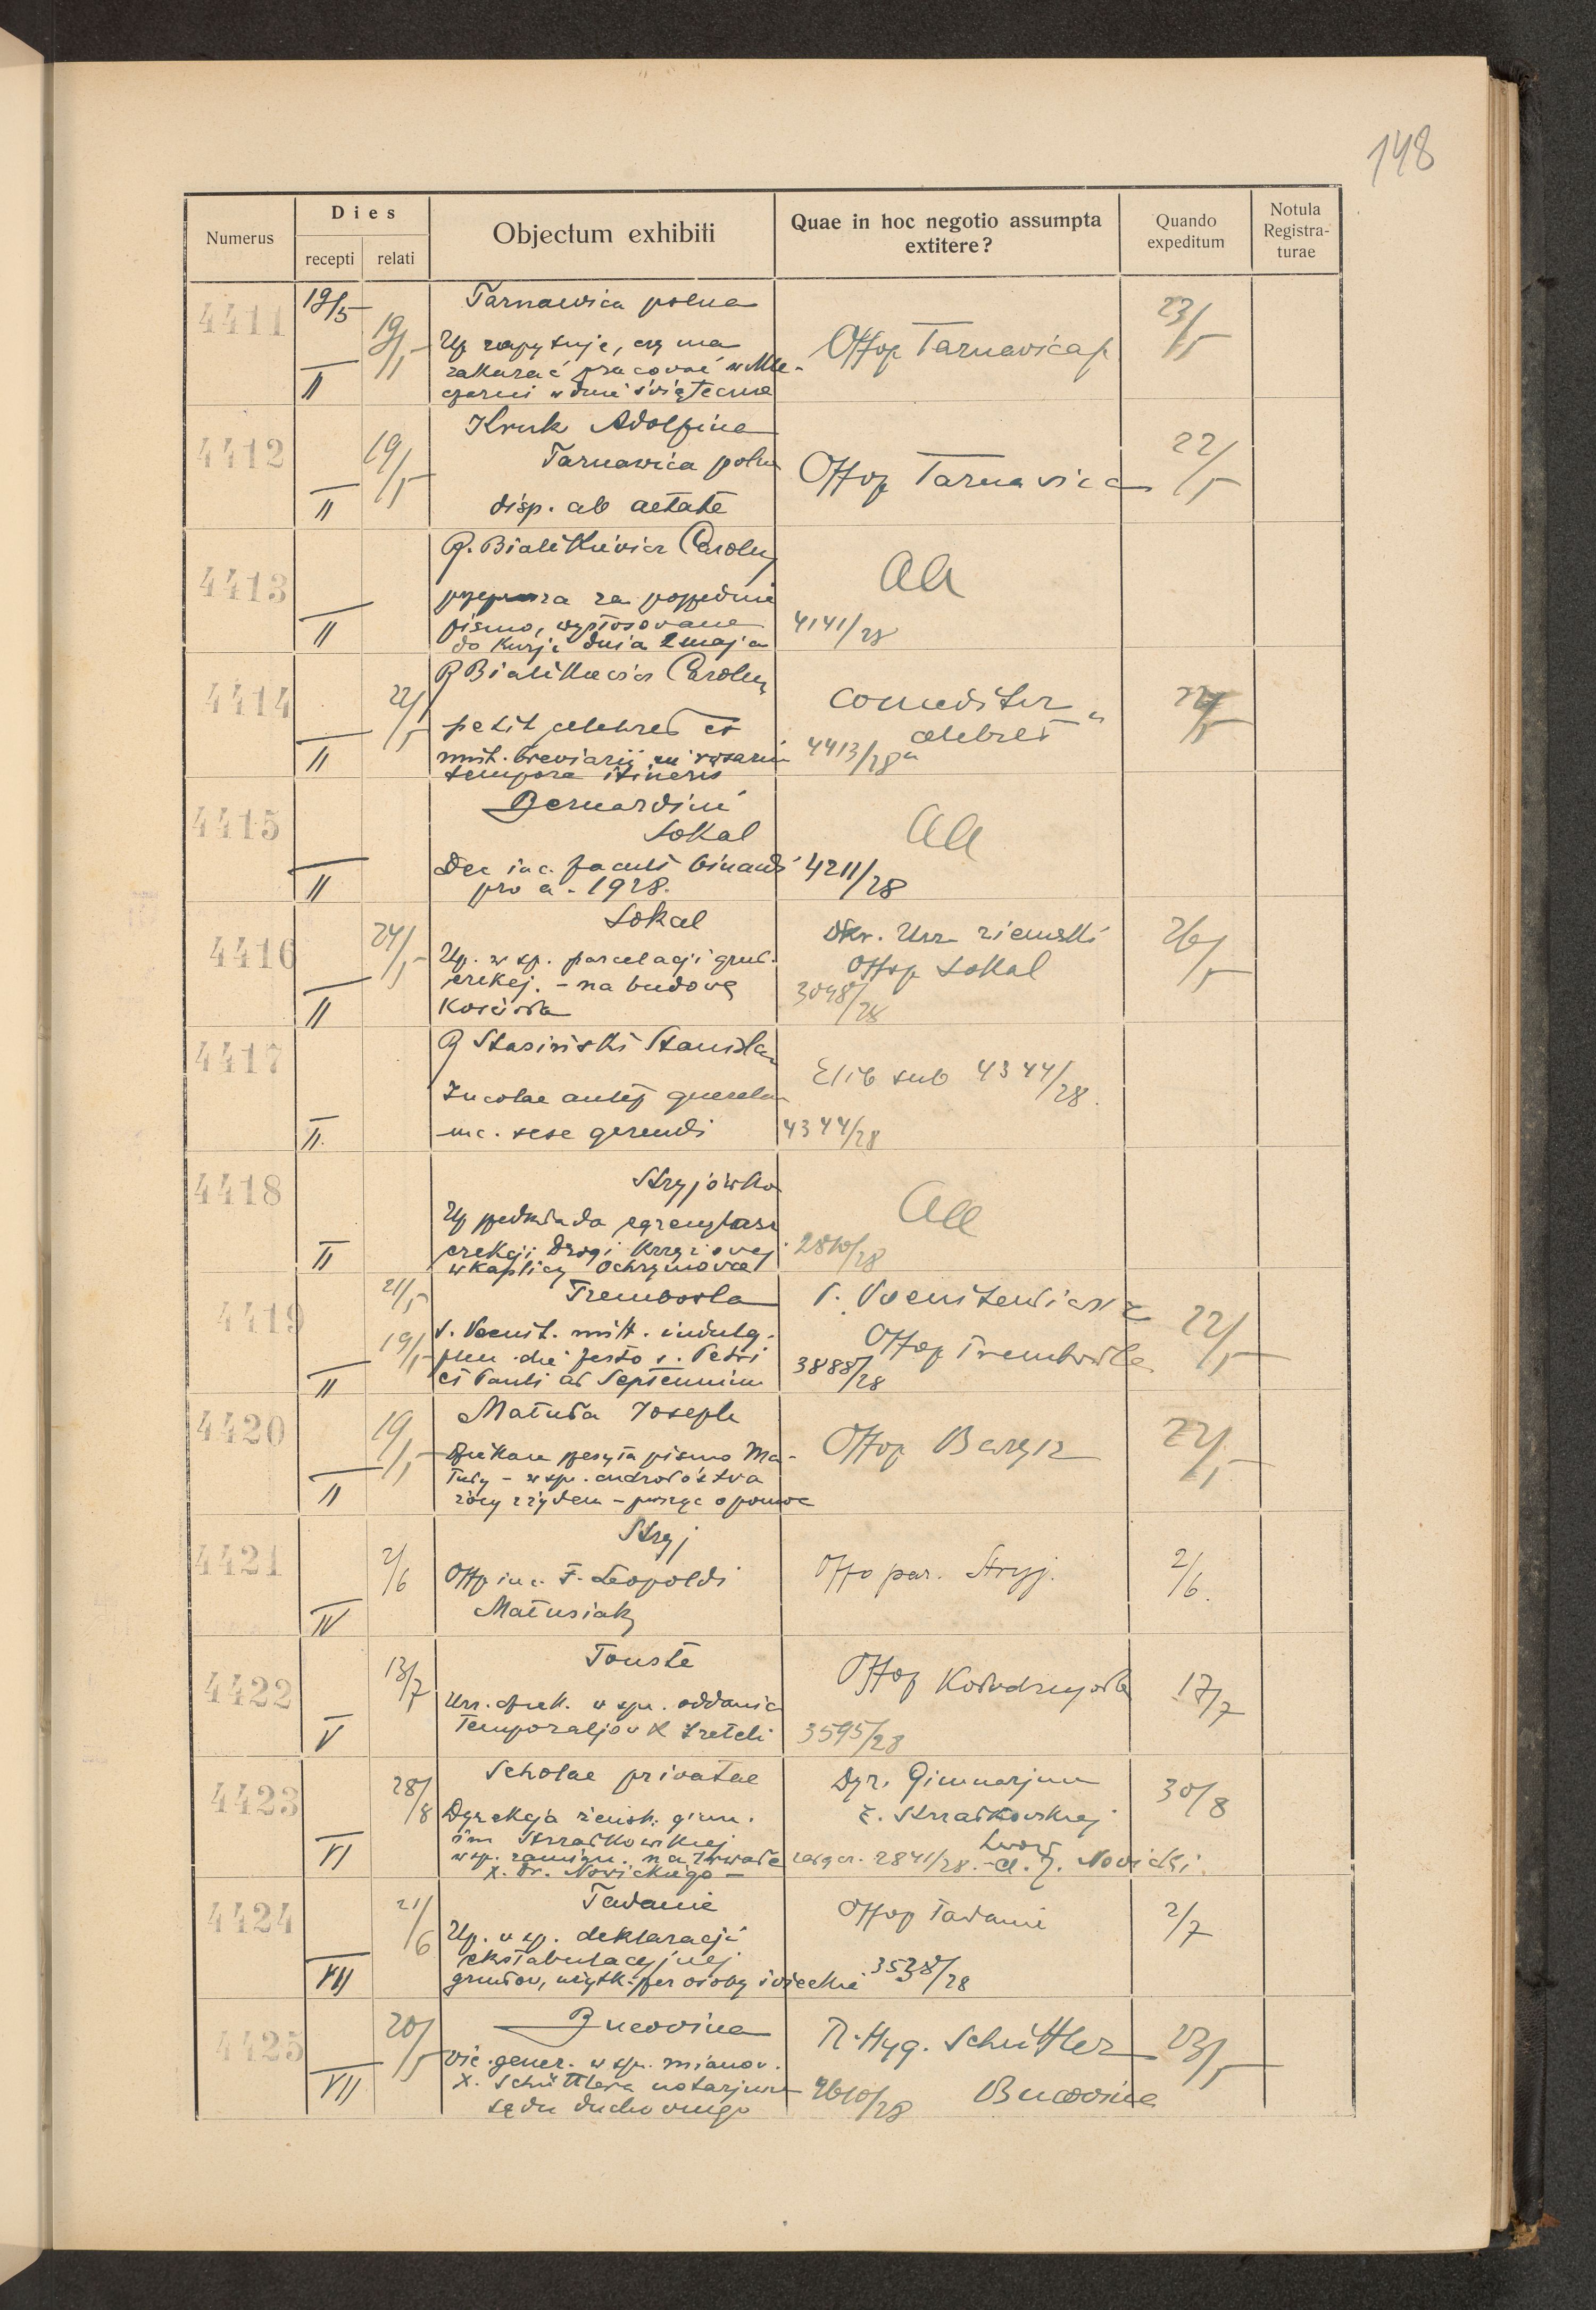 148
Numerus
Dies
recepti
relati
Objectum exhibiti
Quae in hoc negotio assumpta
extitere?
Quando
expeditum
Notula
Registra-
turae
4411
19/5
II
19/5
Tarnawica polna
Up zapytuje, czy ma
zakazać pracować w Mle-
czarni w dnie świąteczne
Offop Tarnavica p
23/5
4412
II
19/5
Kruk Adolfina
Tarnawica polna
disp. ab aetate
Offop Tarnavica
22/5
4413
II
Carolus
za poprzednie
pismo, wystosowane
do Kurji dnia 2 maja
aa
4141/28
4414
II
22/5
Carolus
petit celebret et
mut. breviarii in rosarium
tempore itineris
celebret
4413/28
22/5
4415
II
Bernardini
Sokal
Dec inc. facult binandi
pro a. 1928.
aa
4211/28
4416
II
24/5
Sokal
Up. w sp. parcelacji grunt.
erekcj. - na budowę
Kościoła
Okr. Urz ziemski
Offop Sokal
3098/28
26/5
4417
II.
Stasiński Stanislaus
Incolae querelam
inc. sese gerendi
sub 4344/28.
4344/28
4418
II
Stryjówka
Up przedkłada egzemplarz
erekcji Drogi Krzyżowej
w kaplicy Ochrymowce
aa
2810/28
4419
II
21/5
19/5
Trembowla
mitt. indulg.
plen. die festo s. Petri
et Pauli ad Septennium
Offop Trembowla
3888/28
22/5
4420
II
19/5
Matuła Joseph
Dziekan przesyła pismo Ma-
tuły - w sp. cudzołóstwa
żony z żydem - prosząc o pomoc
Offop Barysz
22/5
4421
IV
2/6
Stryj
Offp inc. F. Leopoldi
Matusiak
Offo par. Stryj.
2/6.
4422
V
13/7
Touste
Urz. dziek. w sp. oddania
temporaljów X Treteli
Offop
3595/28
17/7
4423
VI
28/8
Scholae privatae
Dyrekcja żeńsk. gimn.
im Strzałkowskiej
w sp. zamian. na
X. Dr. Nowickiego -
Dyr. Gimnazjum
Z. Strzałkowskiej
Lwów
2841/28. Cl. J. Novicki.
30/8
4424
VII
21/6
Tadanie
Up. w sp. deklaracji
ekstabulacyjnej
gruntów, użytk. przez osoby świeckie
Offop Tadanie
3538/28
2/7
4425
VII
20/5
Bucovina
Vic. gener. w sp. mianow.
X. Schüttlera notarjuszem
sądu duchownego
R. Hyg. Schüttler
Bucovina
2610/28
23/5